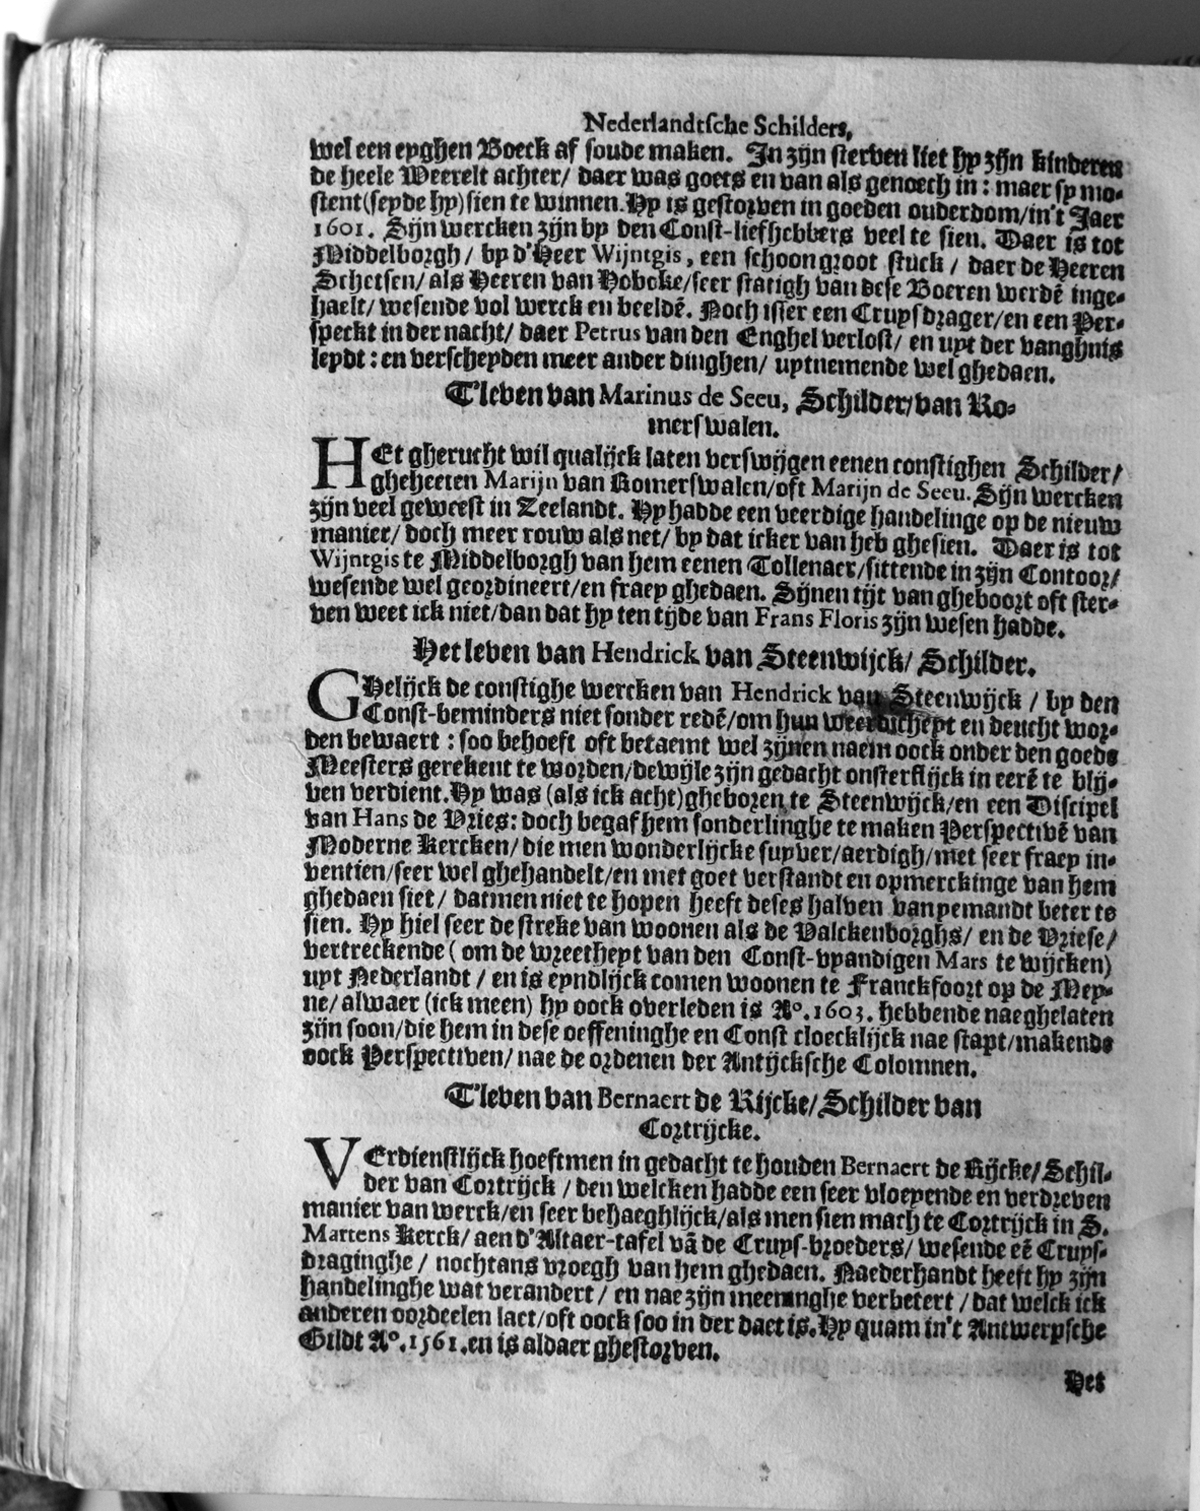 Nederlandtsche Schilders,
wel een eyghen Boeck af soude maken. In zijn sterven liet hy zijn kinderen
de heele Weerelt achter/ daer was goets en van als genoech in: maer sy mo-
stent (seyde hy) sien te winnen. Hy is gestorven in goeden ouderdom/ in't Jaer
1601. Sijn wercken zijn by den Const-liefhebbers veel te sien. Daer is tot
Middelborgh/ by d'Heer Wijntgis, een schoon groot stuck/ daer de Heeren
Schetsen/ als Heeren van Hoboke/ seer statigh van dese Boeren werdē inge-
haelt/ wesende vol werck en beeldē. Noch isser een Cruysdrager/ en een Per-
speckt in der nacht/ daer Petrus van den Enghel verlost/ en uyt der vanghnis
leydt: en verscheyden meer ander dinghen/ uytnemende wel ghedaen.
T'leven van Marinus de Seeu, Schilder/ van Ro-
merswalen.
HEt gherucht wil qualijck laten verswijgen eenen constighen Schilder/
gheheeten Marijn van Romerswalen/ oft Marijn de Seeu. Sijn wercken
zijn veel geweest in Zeelandt. Hy hadde een veerdige handelinge op de nieuw
manier/ doch meer rouw als net/ by dat icker van heb ghesien. Daer is tot
Wijntgis te Middelborgh van hem eenen Tollenaer/ sittende in zijn Contoor/
wesende wel geordineert/ en fraey ghedaen. Sijnen tijt van gheboort oft ster-
ven weet ick niet/ dan dat hy ten tijde van Frans Floris zijn wesen hadde.
Het leven van Hendrick van Steenwijck/ Schilder.
GHelijck de constighe wercken van Hendrick van Steenwijck/ by den
Const-beminders niet sonder redē/ om hun weerdicheyt en deucht wor-
den bewaert: soo behoeft oft betaemt wel zijnen naem oock onder den goede
Meesters gerekent te worden/ dewijle zijn gedacht onsterflijck in eerē te blij-
ven verdient. Hy was (als ick acht) gheboren te Steenwijck/ en een Discipel
van Hans de Vries: doch begaf hem sonderlinghe te maken Perspectivē van
Moderne Kercken/ die men wonderlijcke suyver/ aerdigh/ met seer fraey in-
ventien/ seer wel ghehandelt/ en met goet verstandt en opmerckinge van hem
ghedaen siet/ datmen niet te hopen heeft deses halven van yemandt beter te
sien. Hy hiel seer de streke van woonen als de Valckenborghs/ en de Vriese/
vertreckende (om de wreetheyt van den Const-vyandigen Mars te wijcken)
uyt Nederlandt/ en is eyndlijck comen woonen te Franckfoort op de Mey-
ne/ alwaer (ick meen) hy oock overleden is Aº. 1603. hebbende naeghelaten
zijn soon/ die hem in dese oeffeninghe en Const cloecklijck nae stapt/ makende
oock Perspectiven/ nae de ordenen der Antijcksche Colomnen.
T'leven van Bernaert de Rijcke/ Schilder van
Cortrijcke.
VErdienstlijck hoeftmen in gedacht te houden Bernaert de Rijcke/ Schil-
der van Cortrijck/ den welcken hadde een seer vloeyende en verdreven
manier van werck/ en seer behaeghlijck/ als men sien mach te Cortrijck in S.
Martens Kerck/ aen d'Altaer-tafel vā de Cruys-broeders/ wesende eē Cruys-
draginghe/ nochtans vroegh van hem ghedaen. Naederhandt heeft hy zijn
handelinghe wat verandert/ en nae zijn meeninghe verbetert/ dat welck ick
anderen oordeelen laet/ oft oock soo in der daet is. Hy quam in't Antwerpsche
Gildt Aº. 1561. en is aldaer ghestorven.
Het